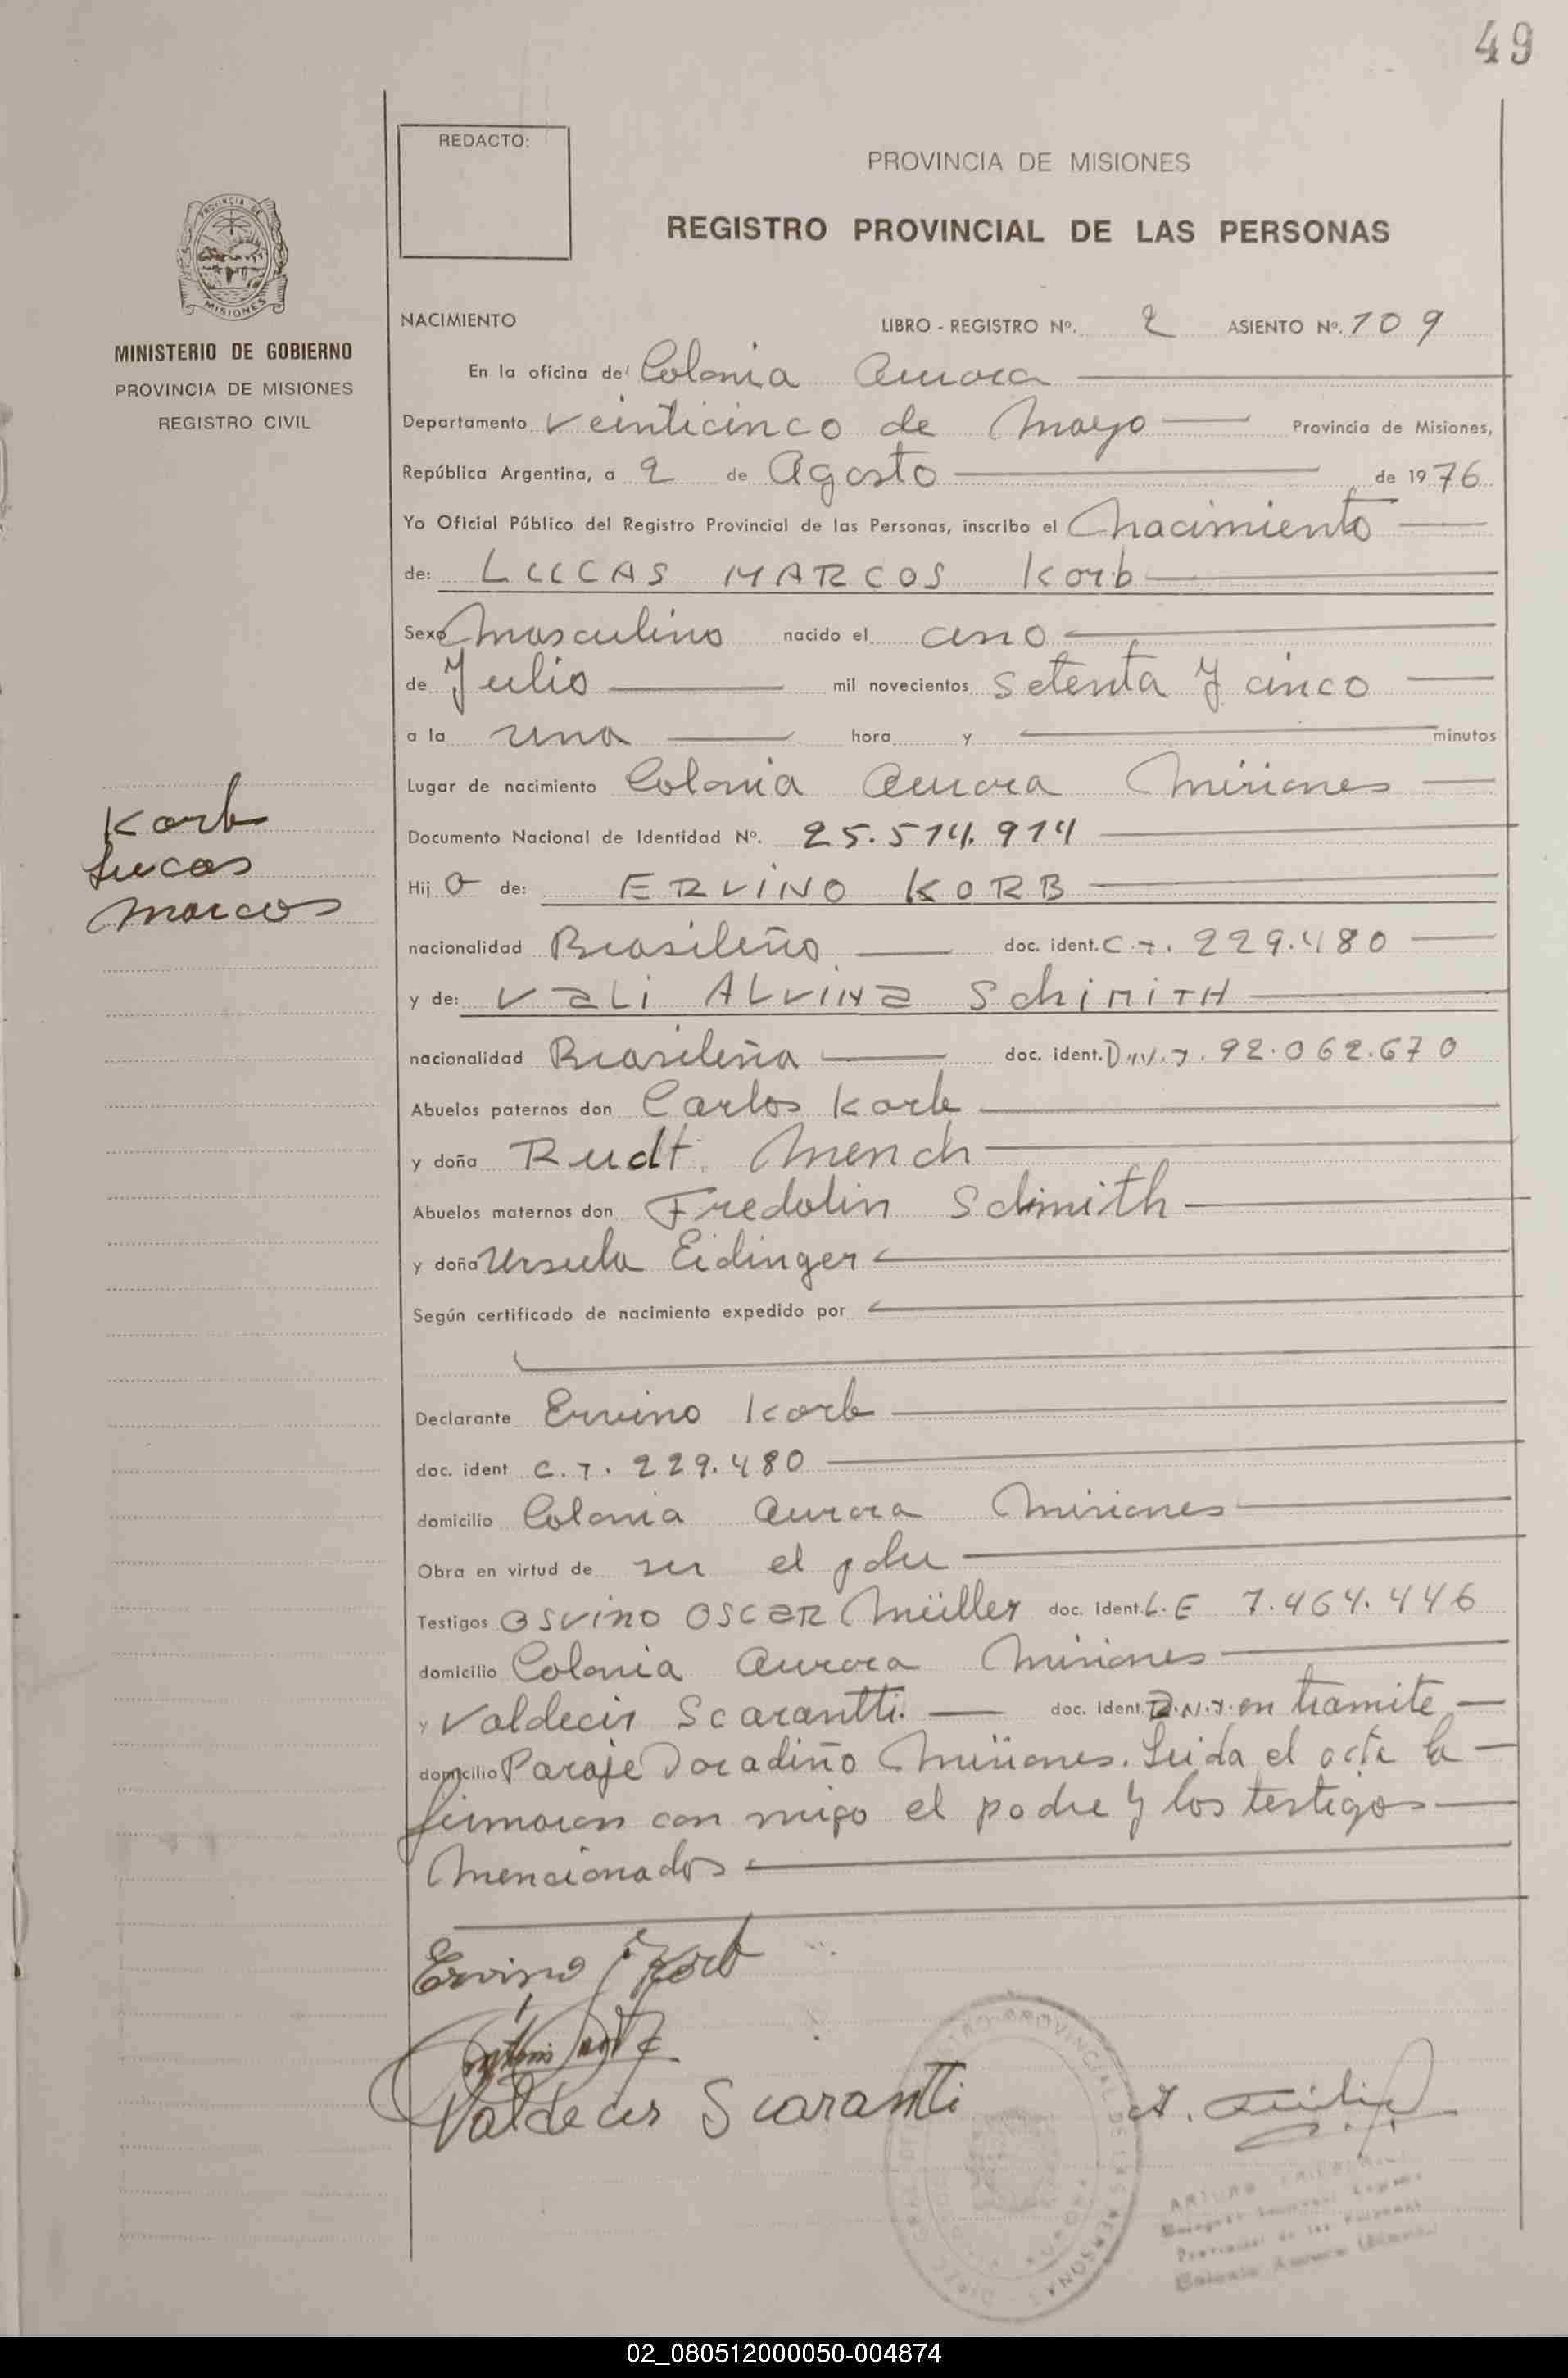 49
REDACTO:
PROVINCIA DE MISIONES
REGISTRO PROVINCIAL DE LAS PERSONAS
PROVINCIA DE
MISIONES
MINISTERIO DE GOBIERNO
PROVINCIA DE MISIONES
REGISTRO CIVIL
NACIMIENTO LIBRO - REGISTRO Nº. 2 ASIENTO Nº. 109
En la oficina de Colonia Aurora
Departamento Veinticinco de Mayo Provincia de Misiones,
República Argentina, a 2 de Agosto de 1976
Yo Oficial Público del Registro Provincial de las Personas, inscribo el Nacimiento
de: LUCAS MARCOS Korb
Sexo Masculino nacido el uno
de Julio mil novecientos Setenta y cinco
a la una hora y minutos
Lugar de nacimiento Colonia Aurora Misiones
Documento Nacional de Identidad Nº. 25.574.974
Hij o de: ERVINO KORB
nacionalidad Brasileño doc. ident. C.I. 229.480
y de: Vali ALVINA SchiMiTH
nacionalidad Brasileña doc. ident. D.N.I. 92.062.670
Abuelos paternos don Carlos Korb
y doña Rudt. Mench
Abuelos maternos don Fredolin Schmith
y doña Ursula Eidinger
Según certificado de nacimiento expedido por
Declarante Ervino Korb
doc. ident C.I. 229.480
domicilio Colonia Aurora Misiones
Obra en virtud de ser el pdre
Testigos OSVINO OSCAR Müller doc. ident. L.E 7.464.446
domicilio Colonia Aurora Misiones
y Valdecir Scarantti. doc. ident. D.N.I. en tramite
domicilio Paraje Doradiño Misiones. Leida el acta la
firmaron con migo el padre y los testigos
Mencionados
Korb
Lucas
Marcos
Ervino Korb
Valdecir Scarantti
PROVINCIAL DE LAS PERSONAS
ARTURO
Colonia Aurora (Misiones)
02_080512000050-004874